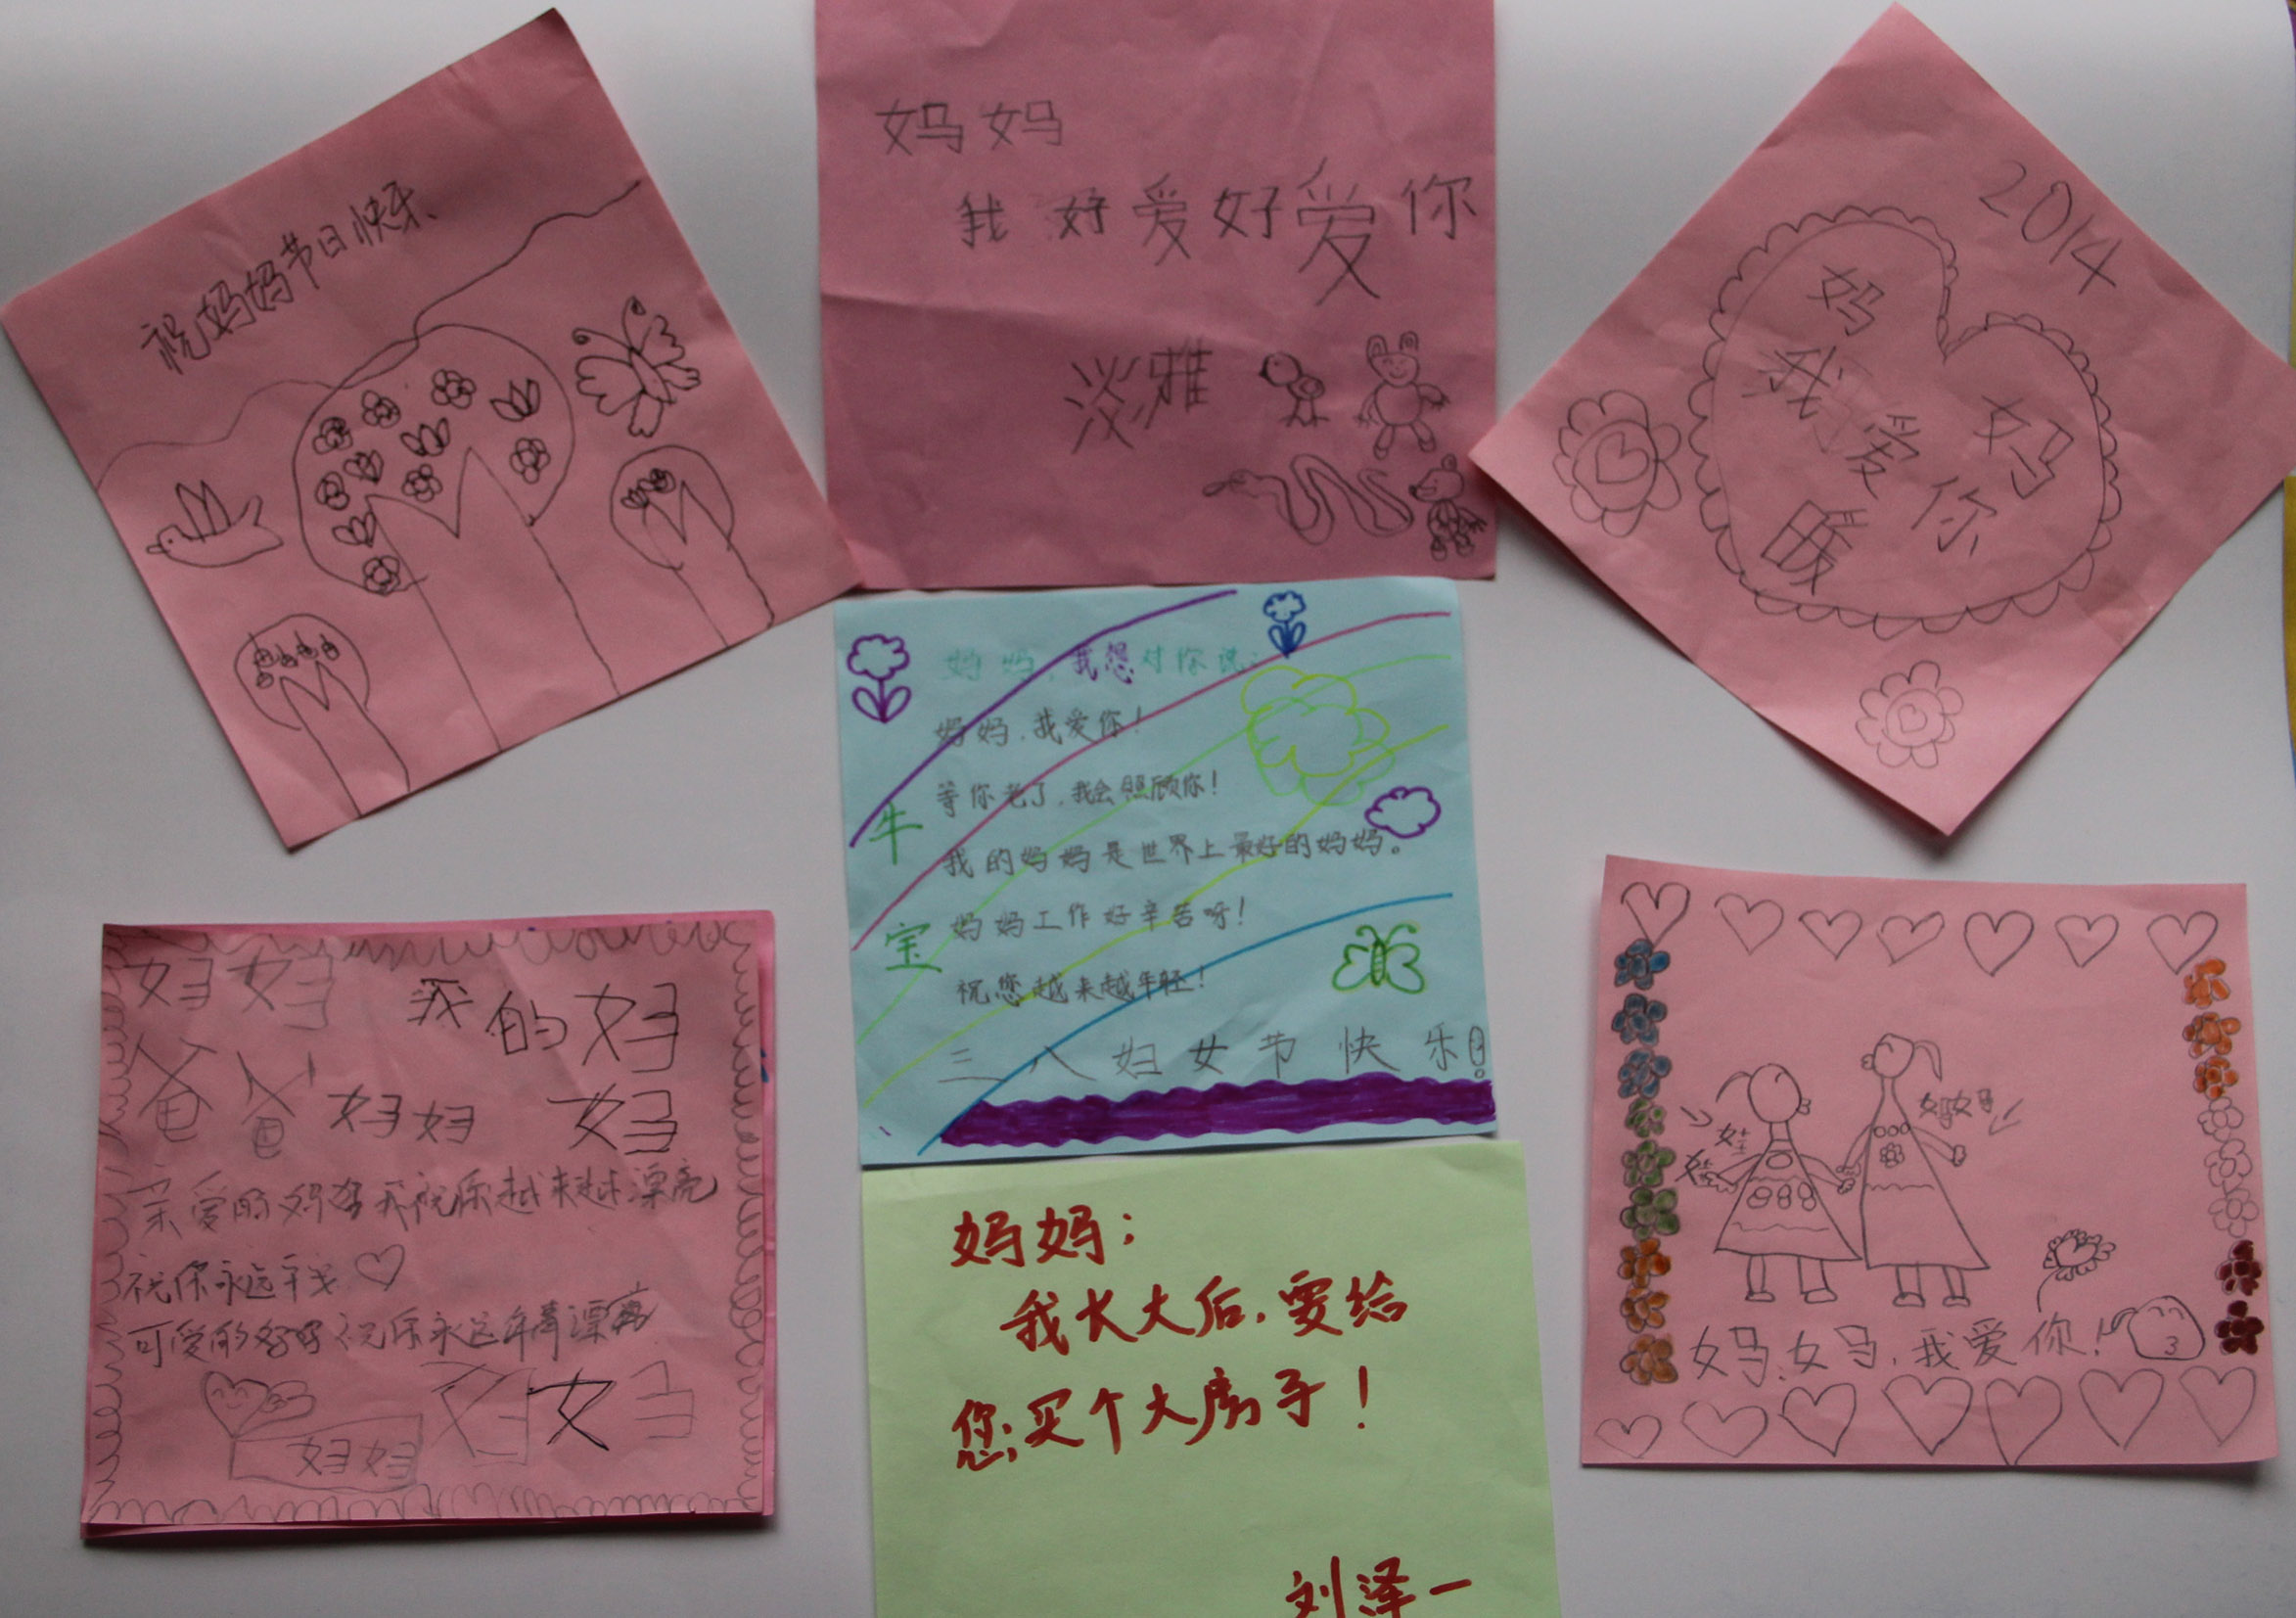 祝妈妈节日快乐
妈妈
我好爱好爱你
淡雅
2014
妈妈
我爱你
暖
妈妈,我想对你说:
妈妈,我爱你!
等你老了,我会照顾你!
我的妈妈是世界上最好的妈妈。
妈妈工作好辛苦呀!
祝您越来越年轻!
三八妇女节快乐!
牛宝
妈妈 我的妈妈
爸爸 妈妈
亲爱的妈妈我祝你越来越漂亮
祝你永远
可爱的妈妈祝你永远年青漂亮
妈妈
妈妈
妈妈:
我长大后,要给
您买个大房子!
刘泽一
妈妈
妈妈,我爱你!